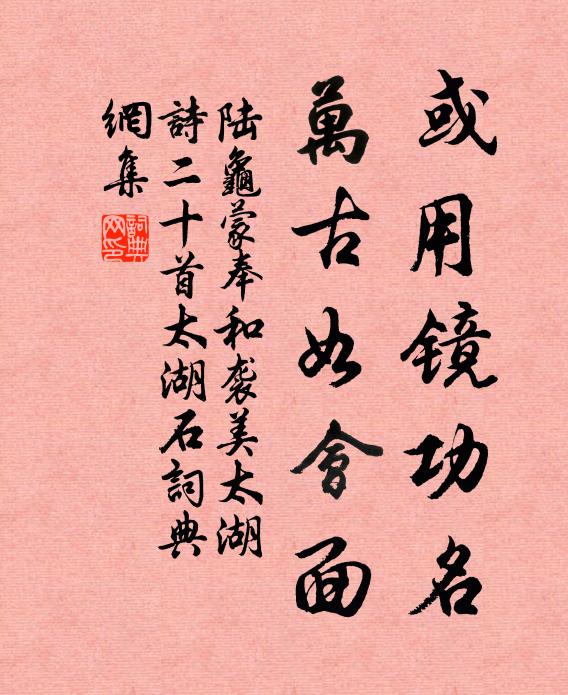 或用镜功名
萬古如會面
陆龜蒙奉和袭美太湖
詩二十首太湖石詞典
網集
詞典网印